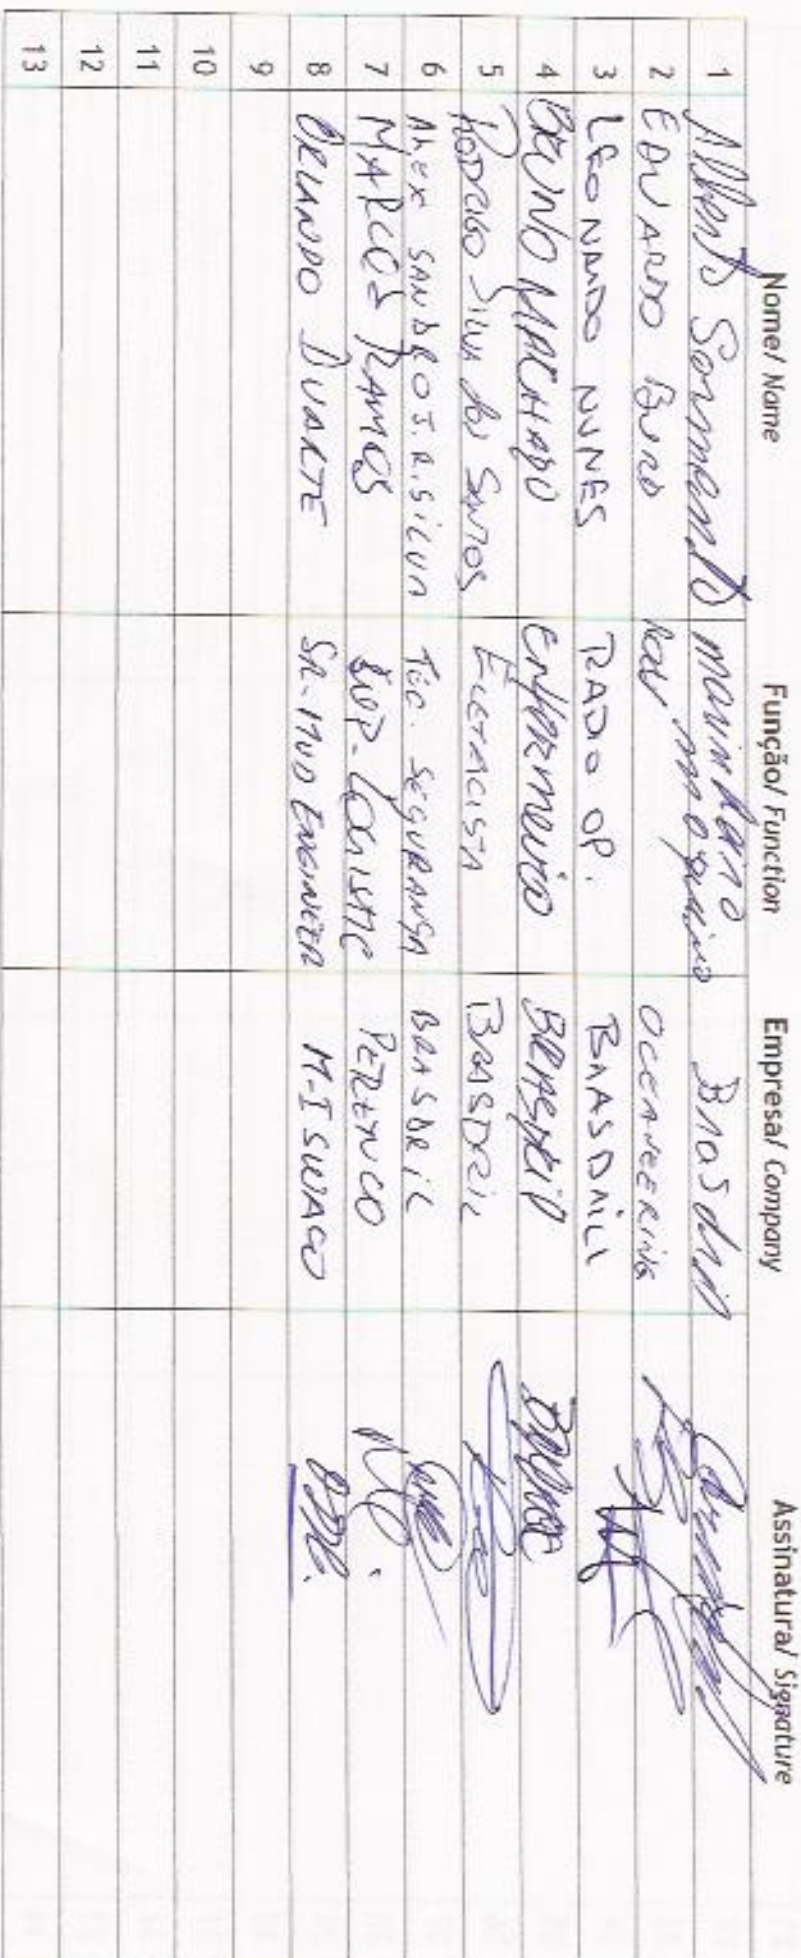 Nome/ Name Função/ Function Empresa/ Company Assinatura/ Signature
1 Alberto Sarmento marinheiro maquina Brasdril
2 EDUARDO ROV OCEANEERING
3 LEONARDO NUNES RADO OP. BRASDRILL
4 BRUNO MACHADO Enfermeiro BRASDRIL
5 RODRIGO SILVA dos SANTOS ELETRICISTA BRASDRIL
6 ALEX SANDRO J.R.SILVA TEC. SEGURANSA BRASDRIL
7 MARCOS RAMOS SUP. LOGISTIC PERENCO
8 ORLANDO DUARTE SR. MUD ENGINEER M-I SWACO
9
10
11
12
13